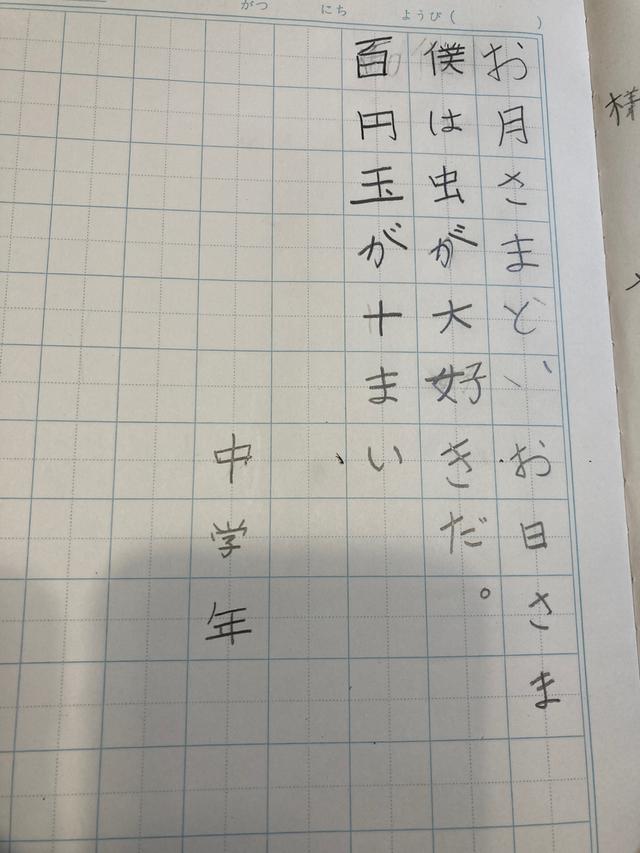 がつ にち ようび( )
お月さまと、お日さま
僕は虫が大好きだ。
百円玉が十まい
中学年
様